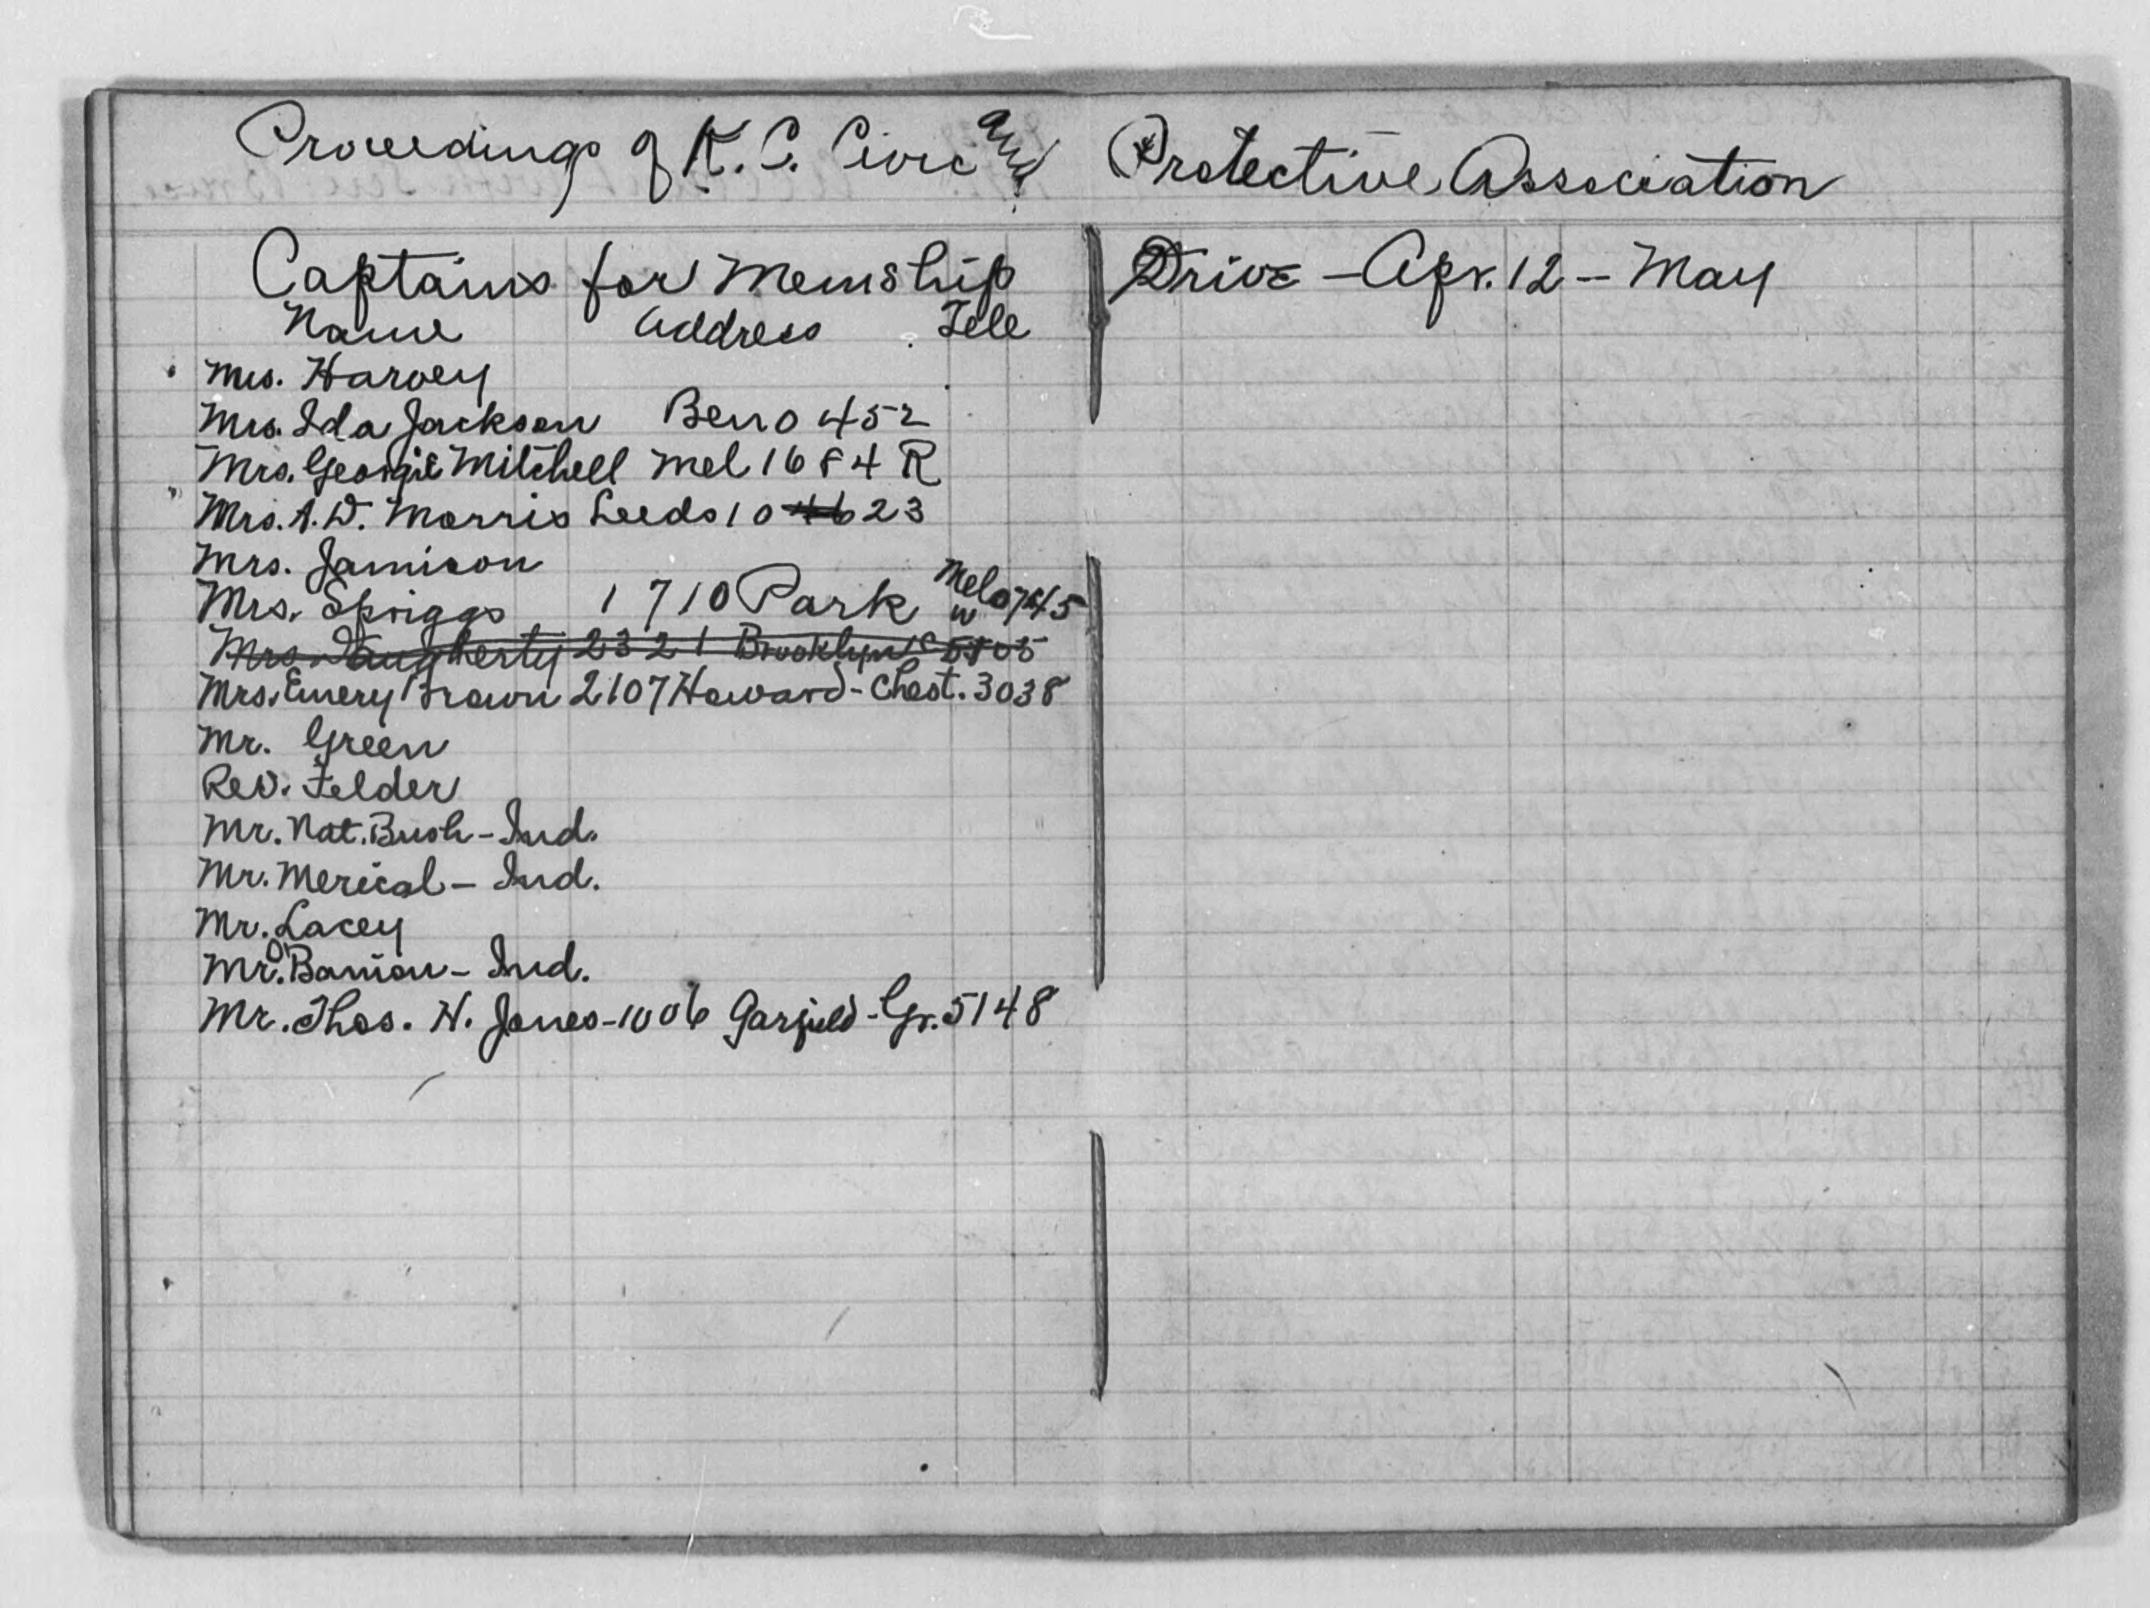 Proceedings of K. C. Civic and Protective Association
Captains for Memship Drive - Apr. 12 - May
Name Address Tele
Mrs. Harvey
Mrs. Ida Jackson Ben 0452
Mrs. Georgie Mitchell Mel 1684 R
Mrs. A. D. Morris Leeds 10 46 23
Mrs. Jamison
Mrs. Spriggs 1710 Park Mel 0745 W
Mrs. Daugherty 2321 Brooklyn
Mrs. Emery Brown 2107 Howard - Chest. 3038
Mr. Green
Rev. Felder
Mr. Nat. Bush - Ind.
Mr. Merical - Ind.
Mr. Lacey
Mr. O'Banion - Ind.
Mr. Thos. H. Jones - 1006 Garfield - Gr. 5148